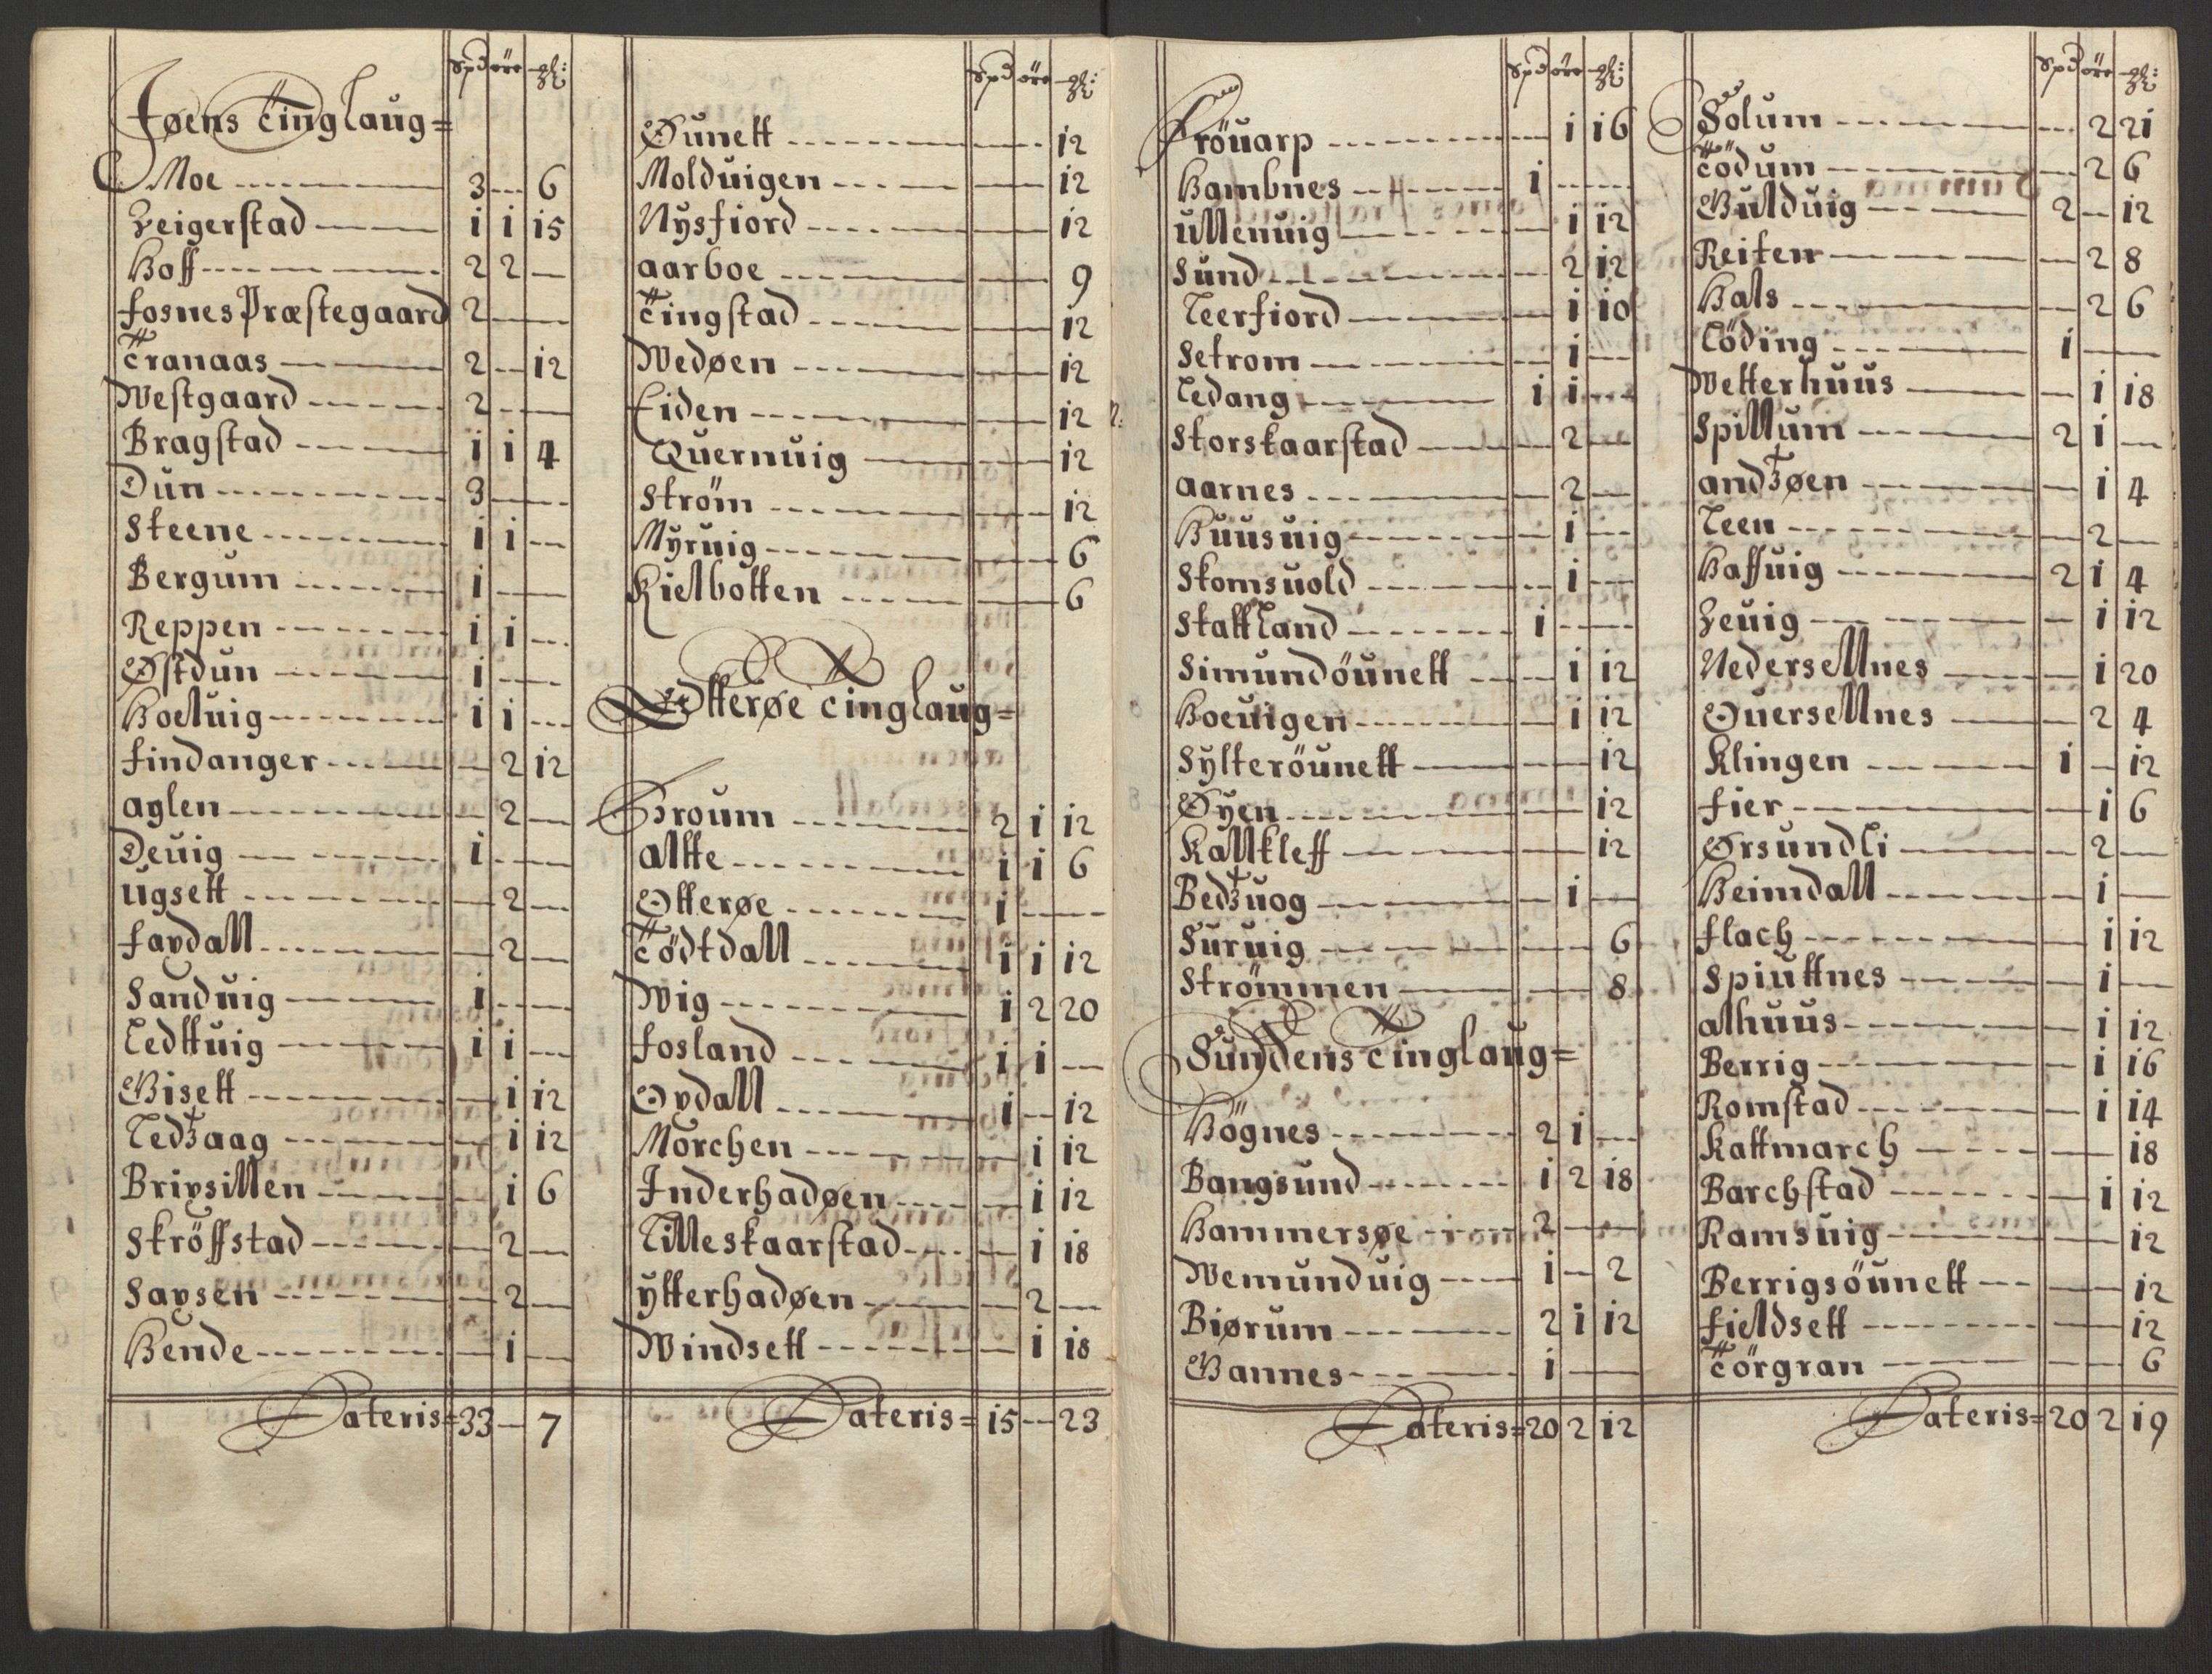 Spd øre ȝl:
Jøens Tinglaug=
Moe 3 - 6
Zeigerstad 1 1 15
Hoff 2 2 -
Fosnes Præstegaard 2 -
Tranaas 2 - 12
Westgaard 2 -
Bragstad 1 1 4
Dun 3 -
Steene 1 1 -
Bergum 1 -
Reppen 1 1 -
Østdun 1 -
Hoeluig 1 1 -
Findanger - 2 12
Aglen - 2 -
Deuig 1 -
Ugsett - 2 -
Favdall - 2 -
Sanduig 1 -
Ledttuig 1 1 -
Gisett - 1 12
Ledzaag - 1 12
Brivsillen - 1 6
Skröffstad - 2 -
Savsen - 2 -
Hende - 1 -
Lateris= 33 - 7
Spd øre ȝl:
Øunett 12
Molduigen 12
Nysfiord 12
Aarboe 9
Tingstad 12
Wedøen 12
Eiden 12
Quernuig 12
Ström 12
Myruig 6
Kielbotten 6
Otterøe Tinglaug=
Groum 2 1 12
Altte 1 1 6
Otterøe 1 -
Tödtdall 1 1 12
Wig 1 2 20
Fosland 1 1 -
Ovdall 1 - 12
Mörchen - 1 12
Inderhadøen - 1 12
Lilleskaarstad - 1 18
Ytterhadøen - 2 -
Windsett - 1 18
Lateris= 15 - 23
Spd øre ȝl:
Fröuarp - 1 16
Hambnes 1 -
Ullenuig - 1 12
Sund - 2 12
Leerfiord - 1 10
Setrom - 1 -
Ledang 1 1 -
Storskaarstad - 2 -
Aarnes - 2 -
Huusuig - 1 -
Skomsuold - 1 -
Stattland 1 -
Simundöunett - 1 12
Hoeuigen - 1 12
Sylteröunett - 12
Øyen - 12
Kallkleff - 12
Bedzuog - 1 -
Suruig - 6
Strömmen - 8
Sundens Tinglaug=
Högnes 2 1 -
Bangsund 1 2 18
Hammersøe 2 -
Wemunduig 1 - 2
Biørum 2 1 12
Gannes 1 -
Lateris= 20 2 12
Spd øre ȝl:
Solum - 2 21
Tödum - 2 6
Gulduig 2 - 12
Reiten - 2 8
Hals - 2 6
Löding 1 -
Wetterhuus - 1 18
Spillum 2 1 -
Andzøen - 1 4
Leen - 2 -
Haffuig 2 1 4
Zeuig - 1 12
Nedersellnes - 1 20
Ouersellnes - 2 4
Klingen 1 - 12
Fier - 1 6
Ørsundli - 2 -
Heimdall - 1 -
Flach - 1 12
Spiuttnes - 1 -
Alhuus - 1 12
Berrig - 1 16
Romstad - 1 14
Kattmarch - 18
Barchstad - 1 12
Ramsuig - 12
Berrigsöunett - 12
Fieldsett - 12
Törgran - 6
Lateris= 20 2 19